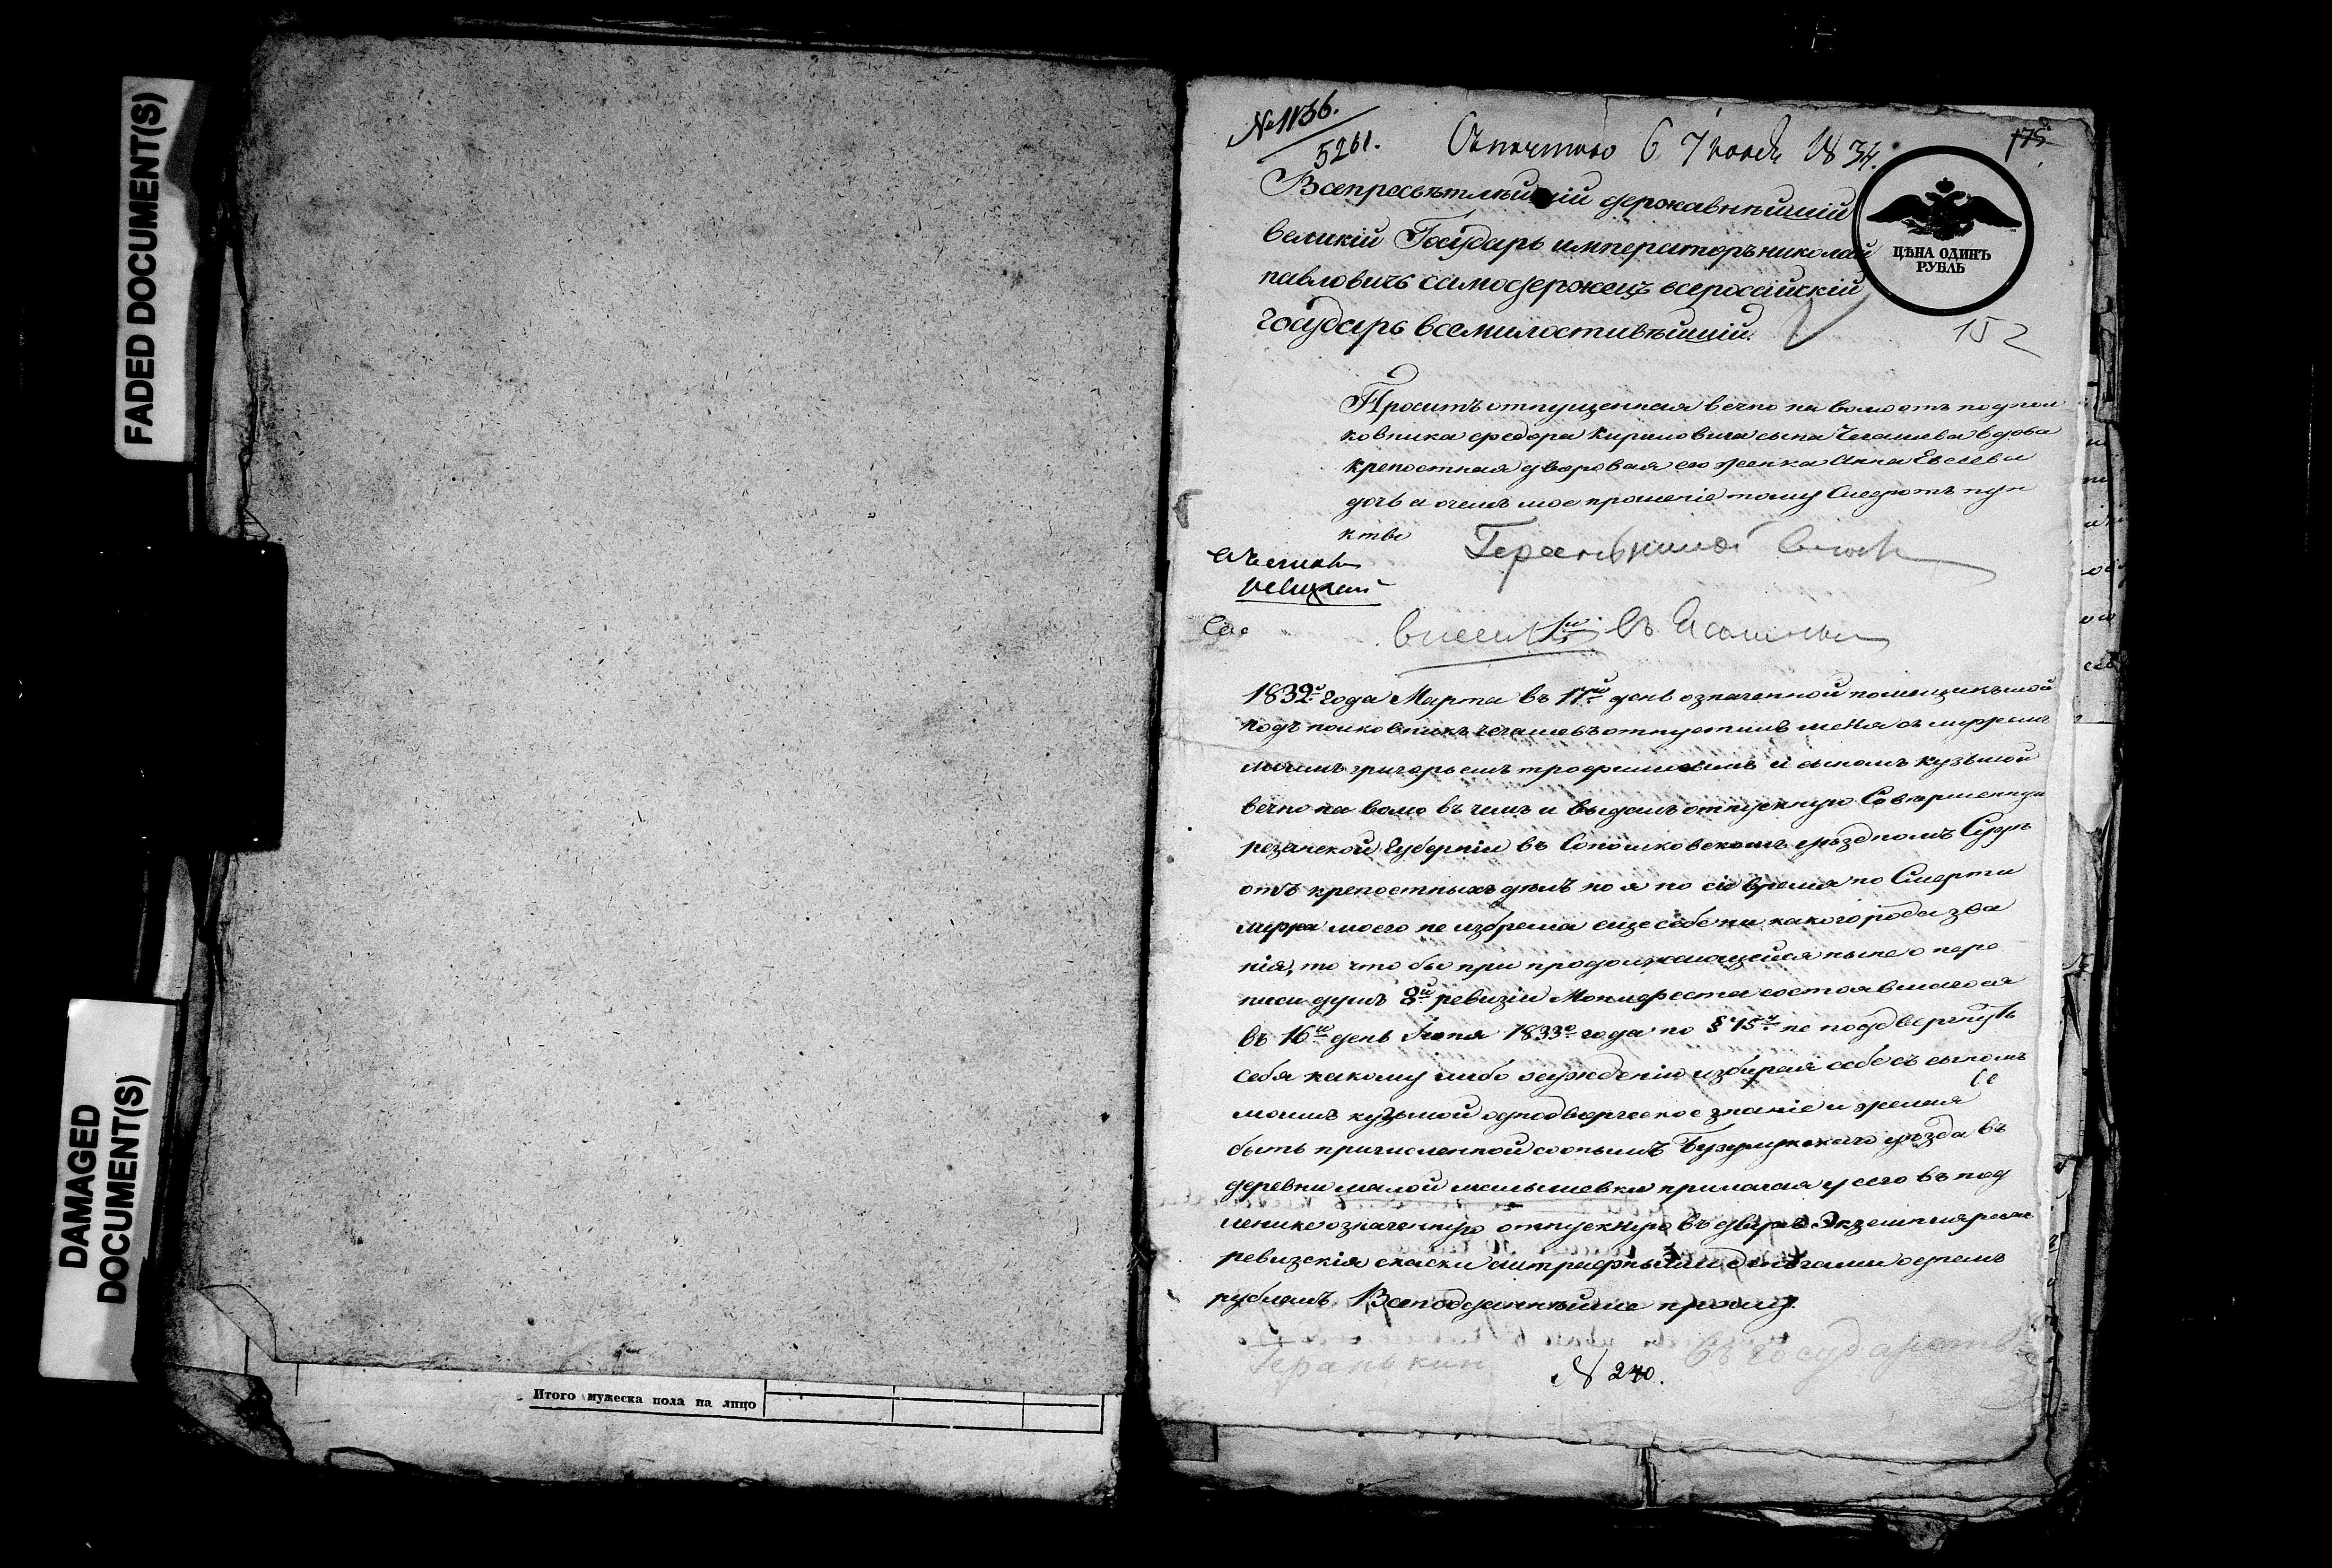 FADED DOCUMENT(S)
DAMAGED
DOCUMENT(S)
Итого мужеска пола на лицо
5261.
6 1834.
175
Всепресвѣтлѣйшій державнѣйшій
великій Государь императоръ николай
павловичъ самодержецъ всероссійскій
государь всемилостивѣйшій.
ЦѢНА ОДИНЪ
РУБЛЬ
152
Проситъ отпущенная вечно на волю отъ подпол
ковника федора Кириловича сына Чегашева вдова
крепостная дворовая его женка Анна Евсеева
дочь а о чемъ мое прошеніе тому Следуютъ пун
кты
1832го года Марта въ 17й день означенной помещикъ мой
подъ полковникъ Чегашевъ отпустилъ меня съ мужемъ
моимъ григорьемъ трофимовымъ и сыномъ кузьмой
вечно на волю въ чемъ и выдалъ отпускную Совершенную
резанской Губерніи въ Сопошковскомъ уѣздномъ Судѣ
отъ крепостныхъ делъ но я по сіе время по Смерти
мужа моего не избрала еще себе ни какого рода зва
нія, то что бы при продолжающейся ныне о пере
писи душъ 8й ревизіи Манифеста состоявшагося
въ 16й день Іюня 1833го года по § 75му не подвергнуть
себя какому либо осужденію избирая себе съ сыномъ
моимъ кузьмой однодворческое званіе и желая
быть причисленной со онымъ Бузулукскаго уѣзда въ
деревни малой малышевки прилагая у сего въ под
ленике означенную отпускную въ двухъ Экземплярахъ
ревизскія скаски съ штрафными деньгами однемъ
рублемъ Всеподданнѣйше прошу.
Геранькин
въ государств
№ 240.